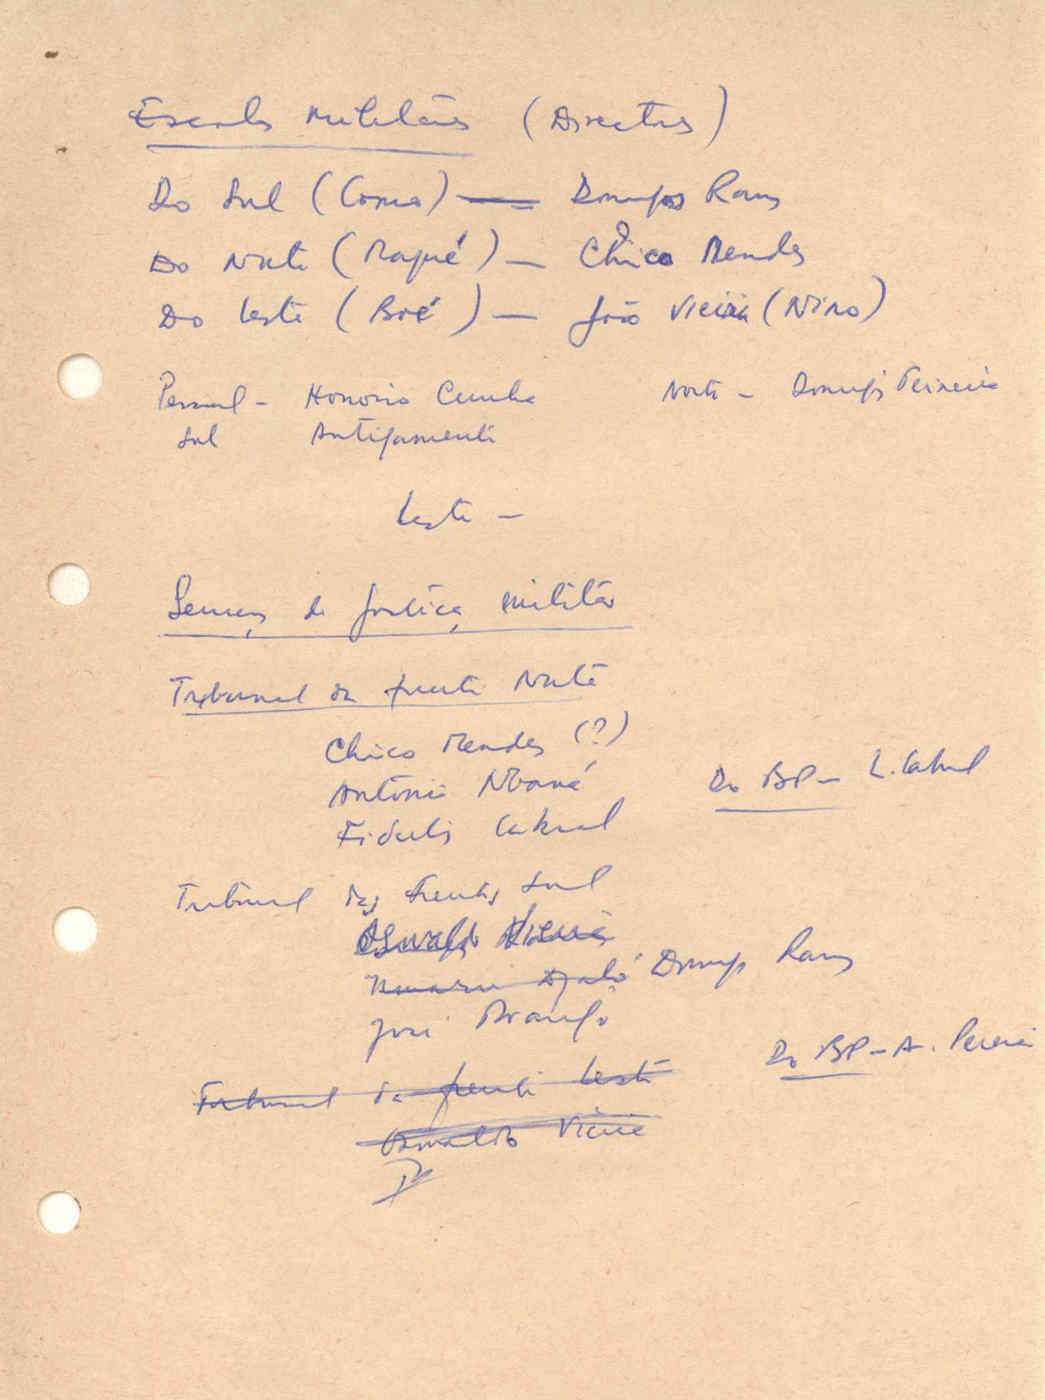 Escolas Militares (Directores)
Do Sul (Como) — Domingos Ramos
Do Norte (Maqué) — Chico Mendes
Do Leste (Boé) — João Vieira (Nino)
Pessoal - Honório Cunha Norte - Domingos Teixeira
Sul Antigamente
Leste -
Serviços de Justiça Militar
Tribunal da frente Norte
Chico Mendes (?)
António Mbaná Do BP - L. Cabral
Fidelis Cabral
Tribunal das frentes Sul
Osvaldo Vieira
Umaru Djaló Domingos Ramos
José Araújo
Do BP - A. Pereira
Tribunal da frente Leste
Osvaldo Vieira